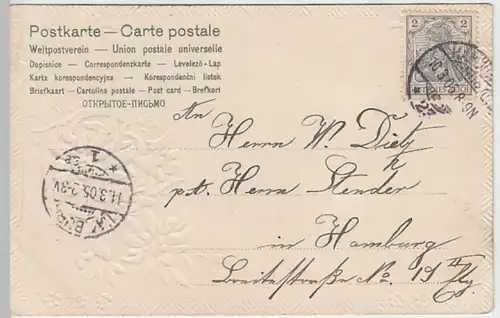 Postkarte — Carte postale
Weltpostverein — Union postale universelle
Dopisnice — Correspondenzkarte — Levelező-Lap
Karta korespondencyjna — Korespondenční lístek
Briefkaart — Cartolina postale — Post card — Brefkort
ОТКРЫТОЕ-ПИСЬМО
2 2
10.3.05 8-9N
*1
11.3.05.2-3V
An
Herrn W. Dietz
Herrn Stender
in Hamburg
Breitestraße No. 19 II